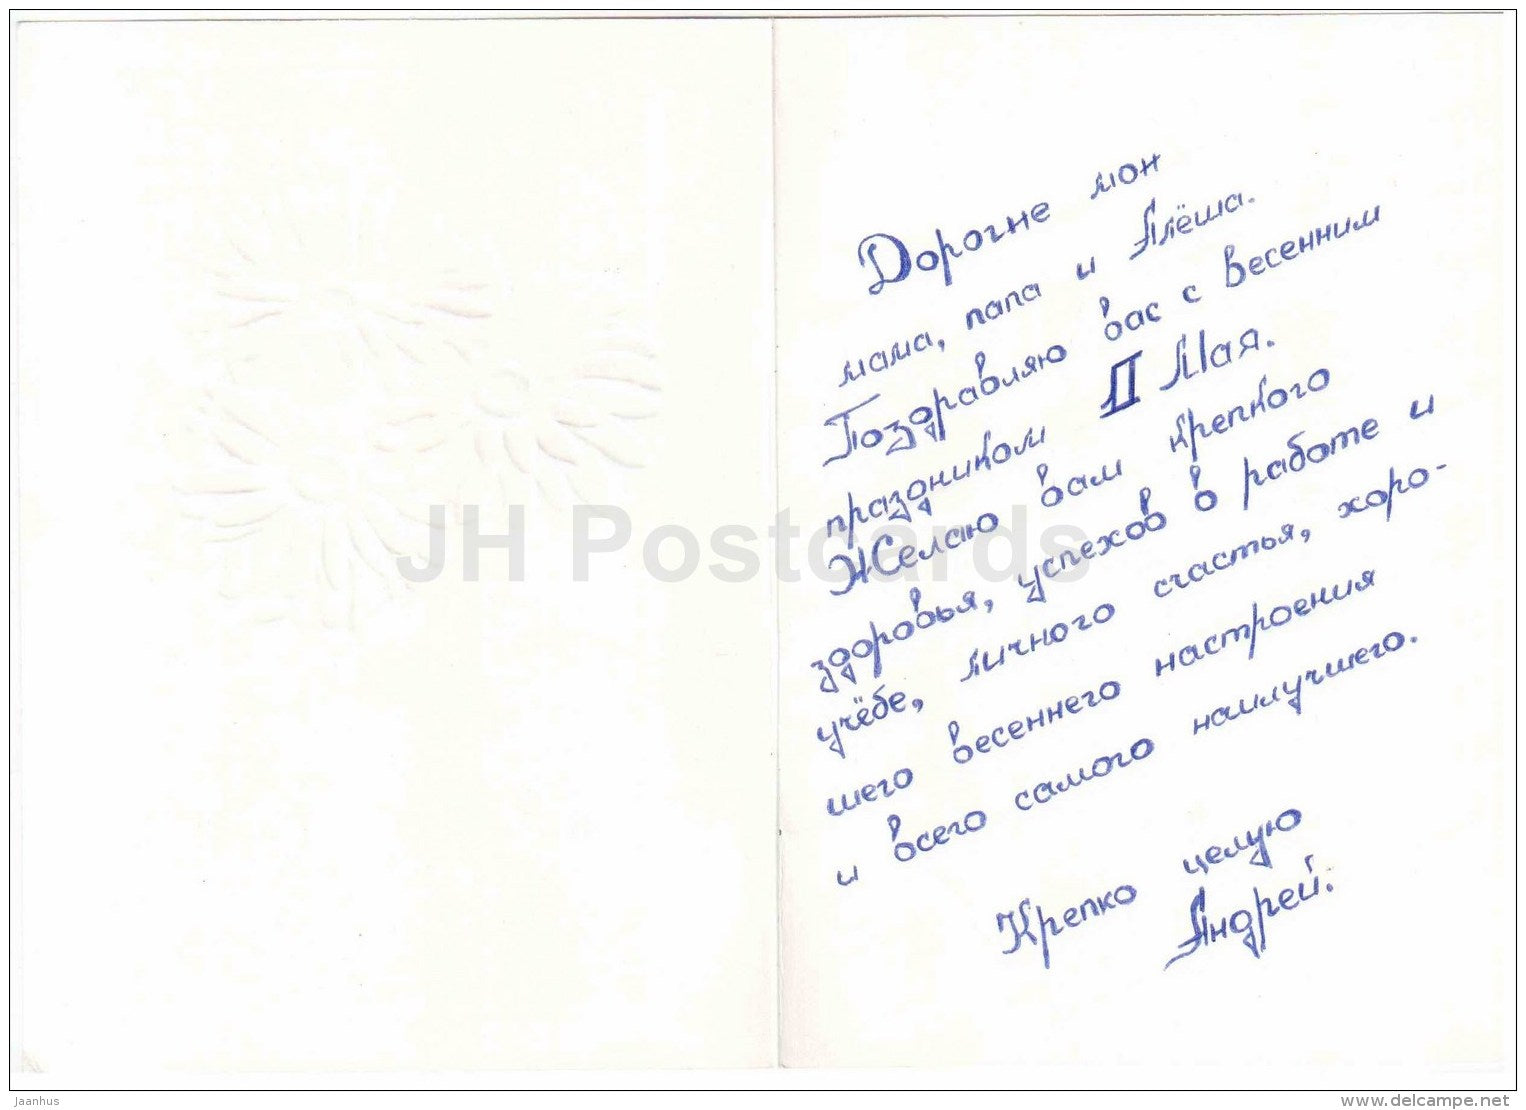 Дорогие мои
мама, папа и Алёша.
Поздравляю вас с весенним
праздником 1 Мая.
Желаю вам крепкого
здоровья, успехов в работе и
учёбе, личного счастья, хоро-
шего весеннего настроения
и всего самого наилучшего.
Крепко целую
Андрей.
JH Postcards
Jaanhus
www.delcampe.net